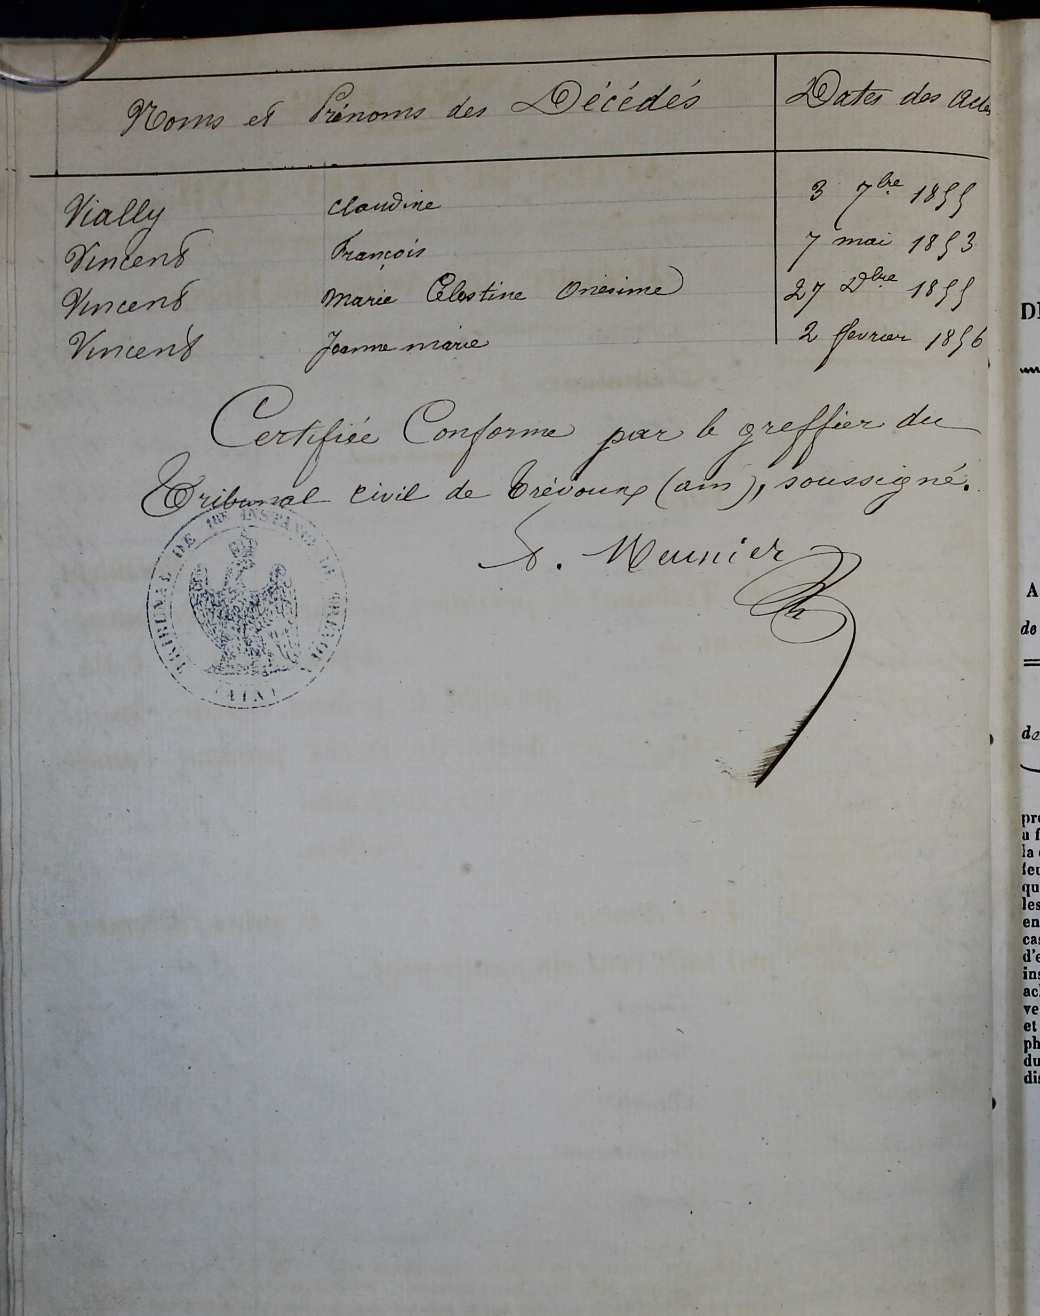 Noms et Prénoms des Décédés Dates des Actes
Vially Claudine 3 7bre 1855
Vincent François 7 mai 1853
Vincent Marie Célestine Onésime 27 Xbre 1855
Vincent Jeanne marie 2 fevrier 1856
Certifiée Conforme par le greffier du
Tribunal civil de Trévoux (ain), soussigné.
Meunier
TRIBUNAL DE 1RE INSTANCE DE TRÉVOUX
(AIN)
A
de
pr
la
qu
les
en
d'e
et
ph
du